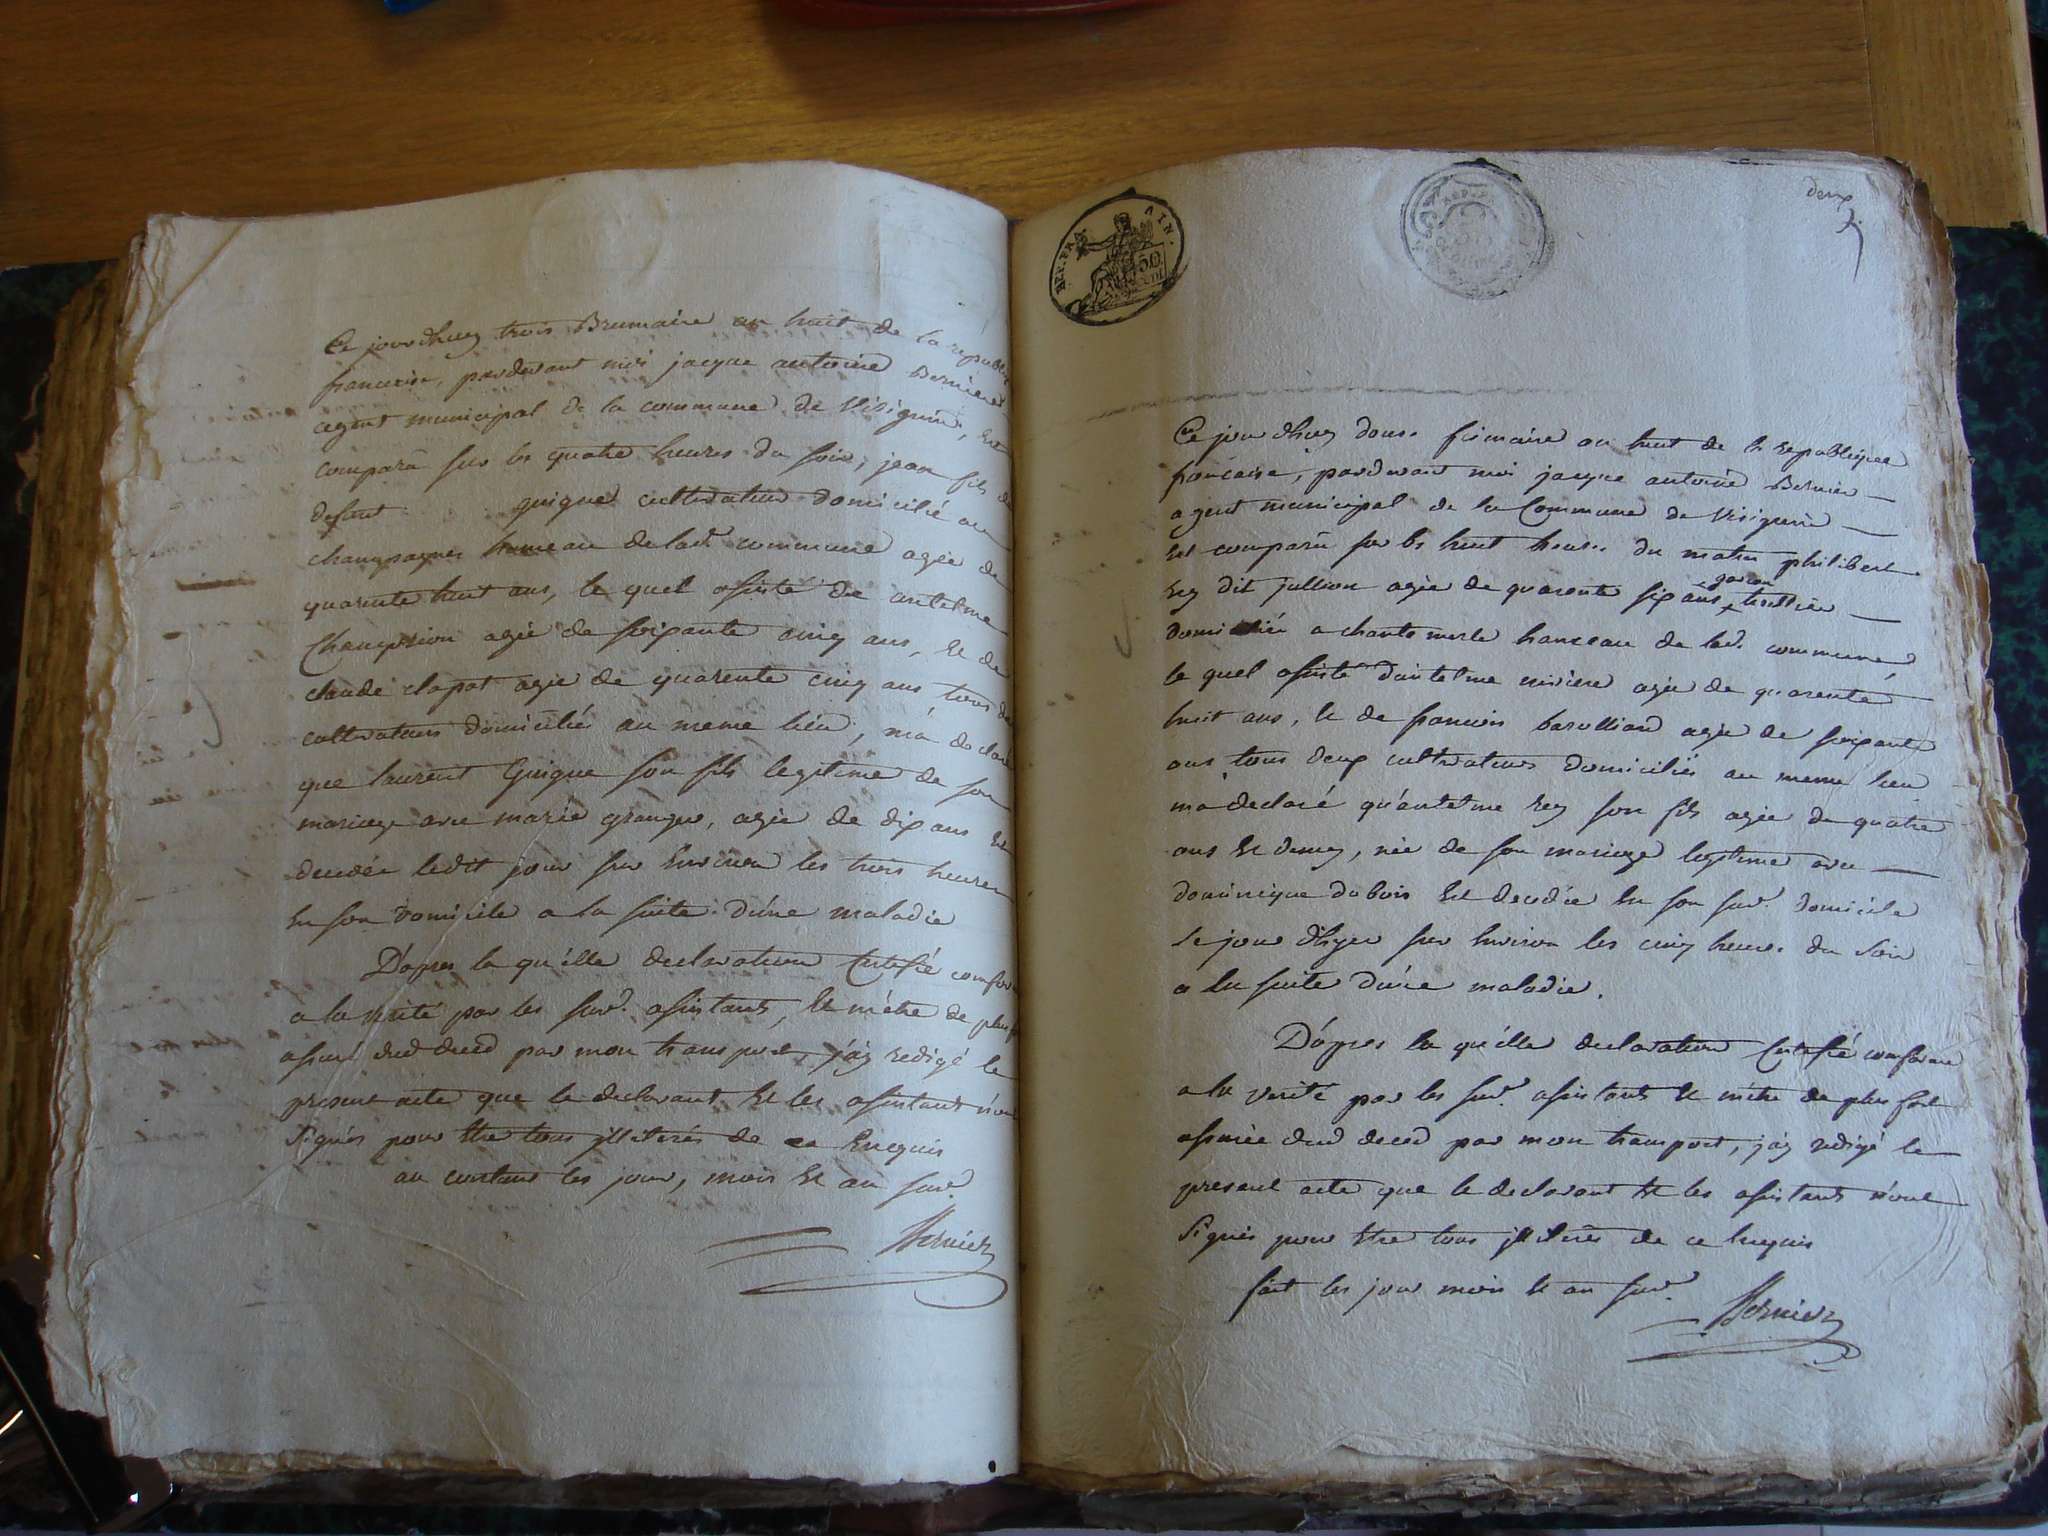 Ce jourdhuy trois Brumaire an huit de la republique
francaise, pardevant moi jacque antoine Bernier
agent municipal de la commune de Virignin, est
comparü sur les quatre heures du soir, jean fils de
defunt guigue cultivateur domicilié au
champagner hameau de lad. commune agée de
quarente huit ans, le quel assisté de antelme
Champion agée de soixante cinq ans, et de
claude clapot agée de quarente cinq ans tous deux
cultivateurs domiciliés au meme lieu, m'a declaré
que laurent Guigue son fils legitime de son
mariage avec marie grange, agée de dix ans est
decedée ledit jour sur Environ les trois heures
en son domicile a la suite d'une maladie
D'apres la qu'elle declaration Certifié conforme
a la verité par les sud. assistants, et m'etre de plus
assuré dud deces par mon transport, j'ay redigé le
present acte que le declarant et les assistants n'ont
signés pour être tous illiterés de ce Enquis
au constant les jour, mois et an sud.
Bernier
deux
REP. FRA. AIN.
50
Ce jourdhuy douse frimaire an huit de la republique
francaise, pardevant moi jacque antoine Bernier
agent municipal de la Commune de Virignin
est comparü sur les huit heures du matin philibert
rey dit jullion agée de quarente six ans garcon
domiciliée a chantemerle hameau de lad. commune,
le quel assisté d'antelme agée de quarente
huit ans, et de francois barollion agée de soixante
ans tous deux cultivateurs domiciliés au meme lieu
m'a declaré qu'antelme rey son fils agée de quatre
ans et demy, née de son mariage legitime avec
dominique dubois est decedée en son sud. domicile
le jour d'hyer sur environ les cinq heures du soir
a la suite d'une maladie.
D'apres la qu'elle declaration Certifié conforme
a la verité par les sud. assistants et m'etre de plus fort
assurée dud deces par mon transport, j'ay redigé le
present acte que le declarant et les assistants n'ont
signés pour être tous illiterés de ce enquis
fait les jour mois et an sud.
Bernier